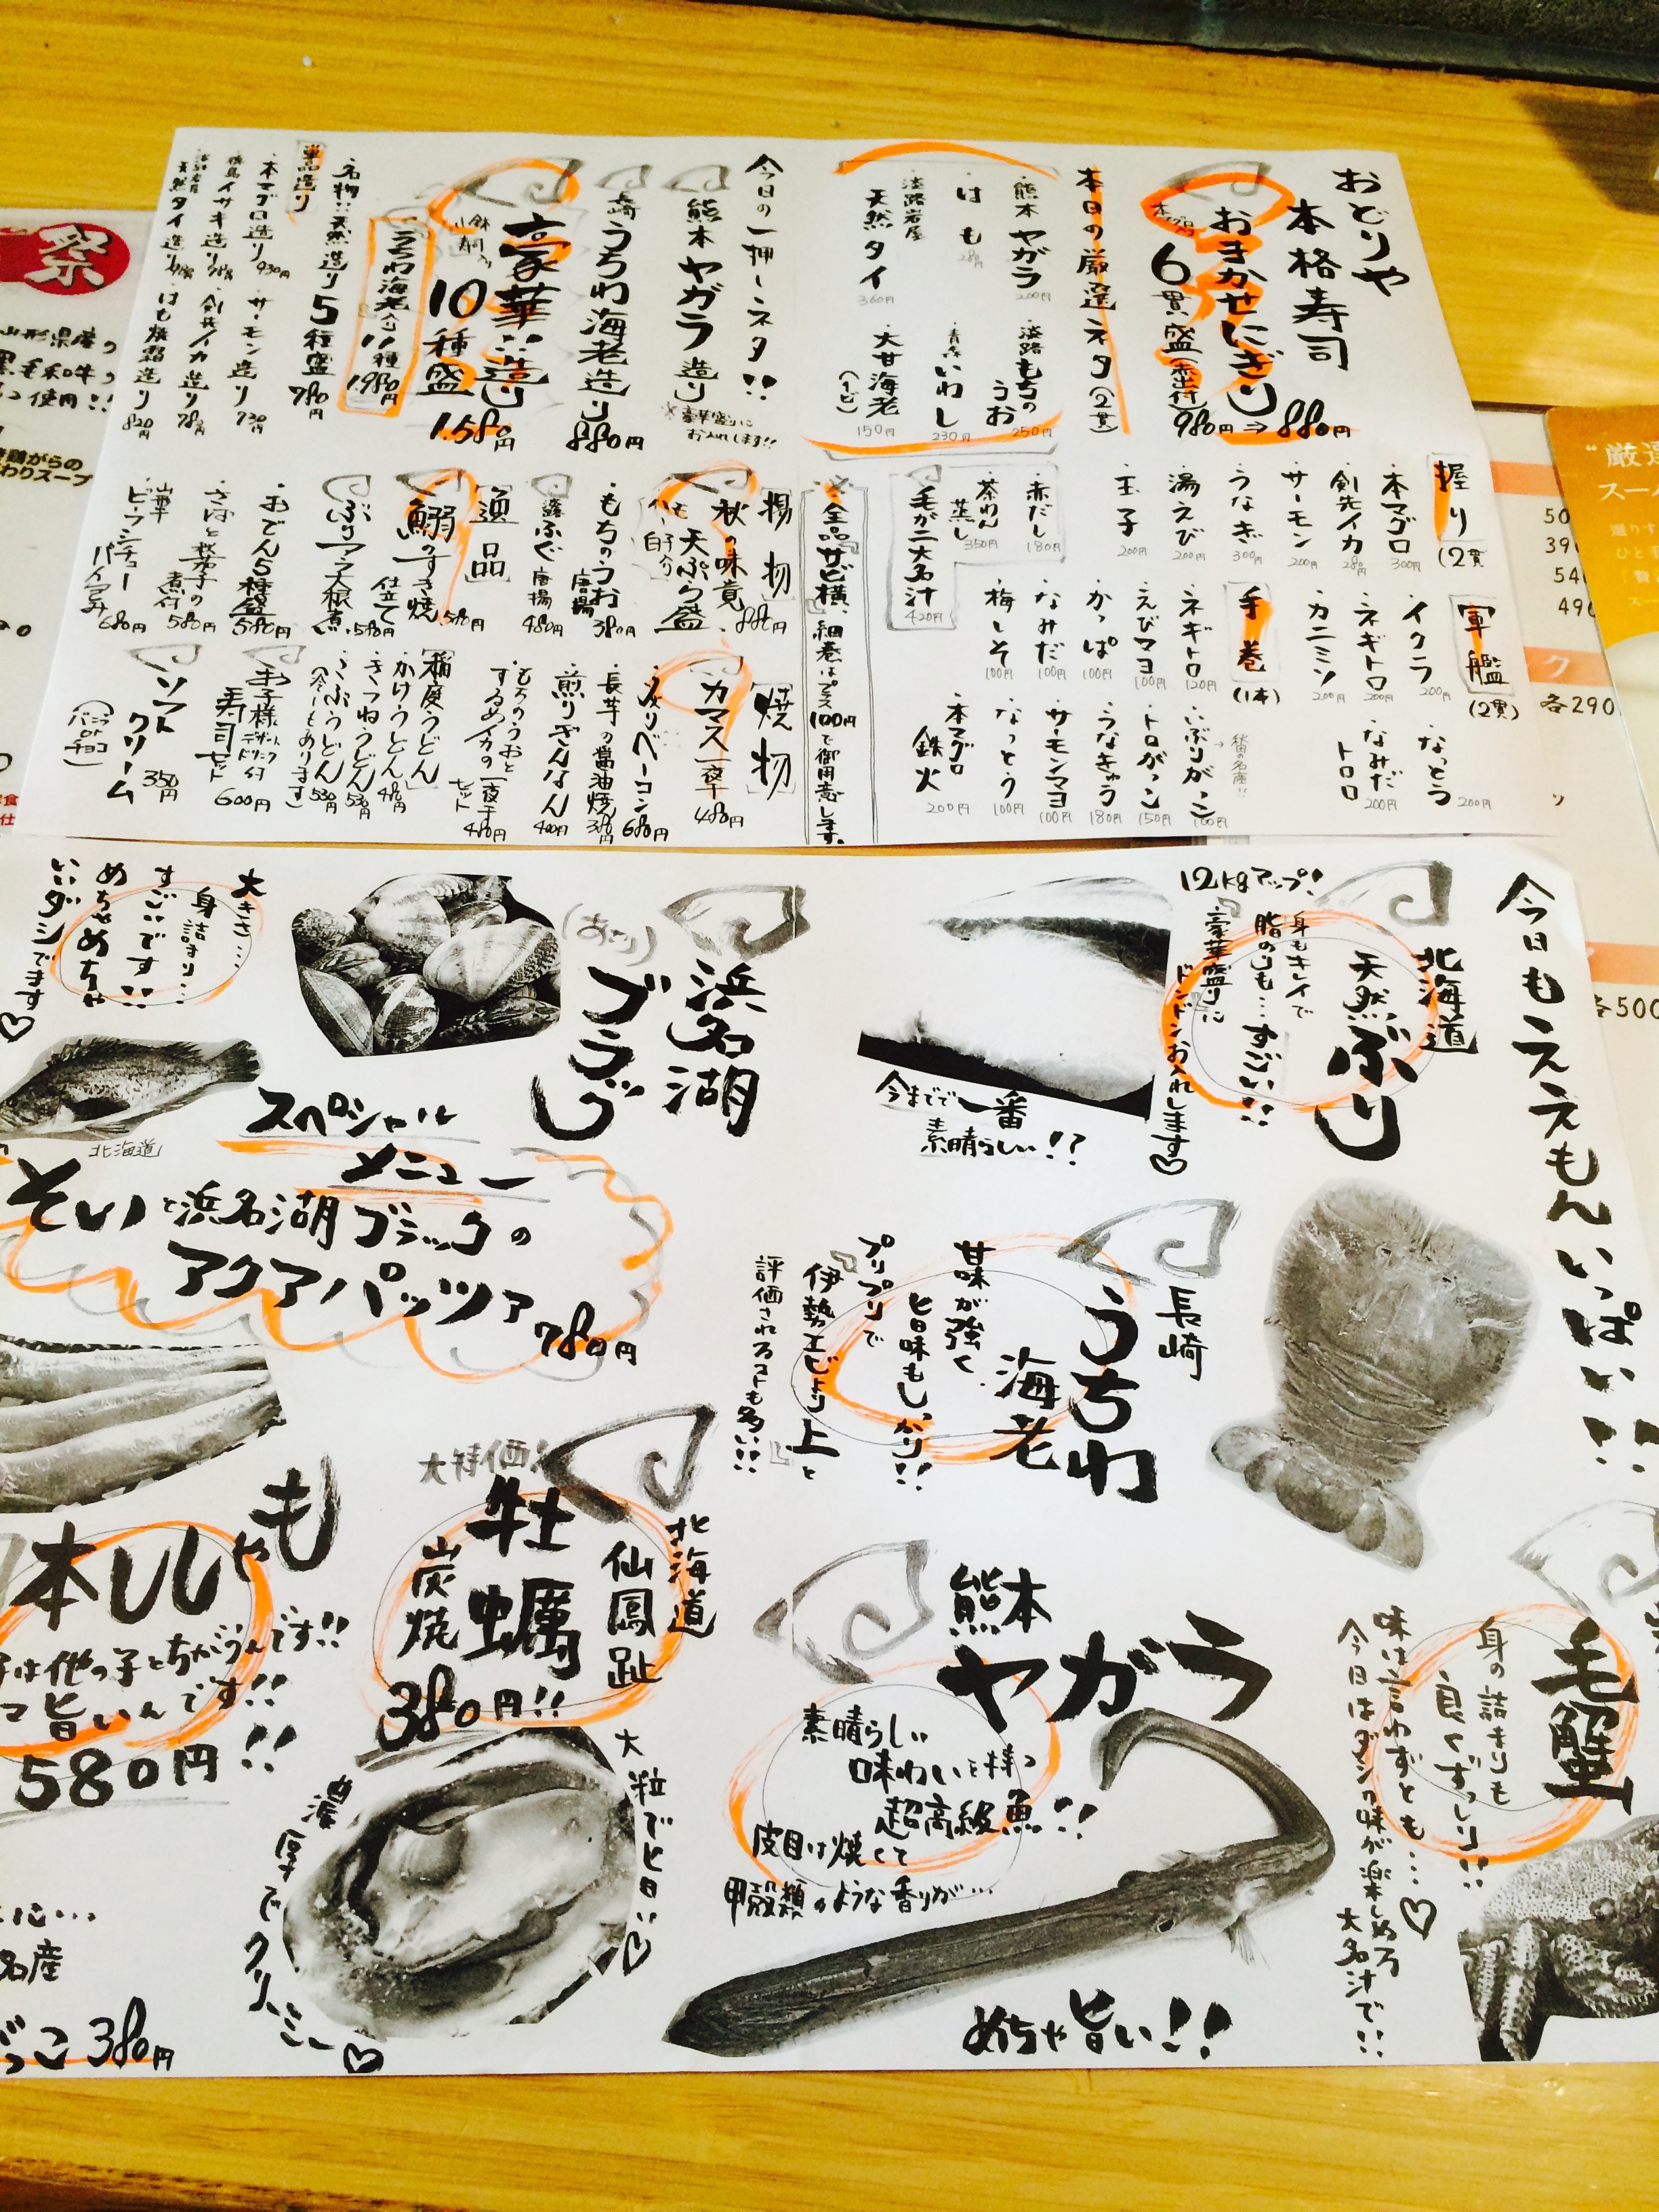 おどりや
本格寿司
おまかせにぎり
6貫盛(赤出付)
980円→880円
本日の厳選ネタ(2貫)
熊本ヤガラ 200円
淡路もちのうお 250円
はも
青森いわし 230円
淡路岩屋
天然タイ 360円
大甘海老(1ピ) 150円
今日の一押しネタ!!
熊本ヤガラ造り
※豪華盛りにお入れします!!
長崎うちわ海老造り 880円
豪華!!造り
10種盛 1.580円
うちわ海老入り11種 1980円
名物!!天然造り5種盛 780円
単品造り
本マグロ造り 930円
サーモン造り 730円
イサキ造り
剣先イカ造り 780円
天然タイ造り
はも焼霜造り 820円
握り(2貫)
本マグロ 300円
剣先イカ 280円
サーモン 200円
うなぎ 300円
湯えび 200円
玉子 200円
赤だし 180円
茶わん蒸し 350円
毛がニ大名汁 420円
軍艦(2貫)
イクラ 200円
ネギトロ 200円
カニミソ 200円
なっとう 200円
なみだ 200円
トロロ
手巻(1本)
ネギトロ 120円
えびマヨ 100円
かっぱ 100円
なみだ 100円
梅しそ 100円
秋田の名産!!
いぶりがっこ 100円
トロがっこ 150円
うなきゅう 180円
サーモンマヨ 100円
なっとう 100円
本マグロ鉄火 200円
※全品サビ横、細巻はプラス100円で御用意します。
[揚物]
秋の味覚、天ぷら盛 880円
もちのうお唐揚 380円
ふぐ唐揚 480円
[逸品]
鰯のすき焼仕立て 580円
ぶりアラ大根煮 580円
おでん5種盛 580円
さばと茄子の煮付 580円
ビーフシチューパイ包み 680円
[焼物]
カマス一夜干 480円
炙りベーコン 680円
長芋の醤油焼 380円
煎りぎんなん 400円
もちのうおとするめイカの一夜干セット 480円
[稲庭うどん]
かけうどん 480円
きつねうどん 530円
こぶうどん 530円
(冷しもあります)
お子様寿司セット
デザート ドリンク付 600円
ソフトクリーム 350円
(バニラ or チョコ)
今日もええもんいっぱい!!
北海道
天然ぶり
12kgアップ!
身もキレイで
脂のりも…すごい!!
豪華盛りに
ドンドンお入れします♡
今までで一番
素晴らしい!?
浜名湖
ブラック
(あさり)
大きさ…
身詰まり…
すごいです!!
めちゃめちゃ
いいダシでます♡
北海道
スペシャル
メニュー
そいと浜名湖ブラックの
アクアパッツァ 780円
長崎
うちわ
海老
甘味が強く、
旨味もしっかり!!
プリプリで
伊勢エビより上と
評価されるコトも多い!!
本ししゃも
580円!!
大特価!
北海道
仙鳳趾
牡蠣
炭焼
380円!!
大粒で旨い♡
濃厚でクリーミー♡
熊本
ヤガラ
素晴らしい
味わいを持つ
超高級魚!!
皮目は焼くて
甲殻類のような香りが…
めちゃ旨い!!
毛蟹
身の詰まりも
良くずっしり!!
味は言わずとも…♡
今日はダシの味が楽しめる
大名汁で!!
名産
がっこ 380円
祭
山形県産の
黒毛和牛
使用!!
鶏がらの
わりスープ
“厳選
スー
各290
各500